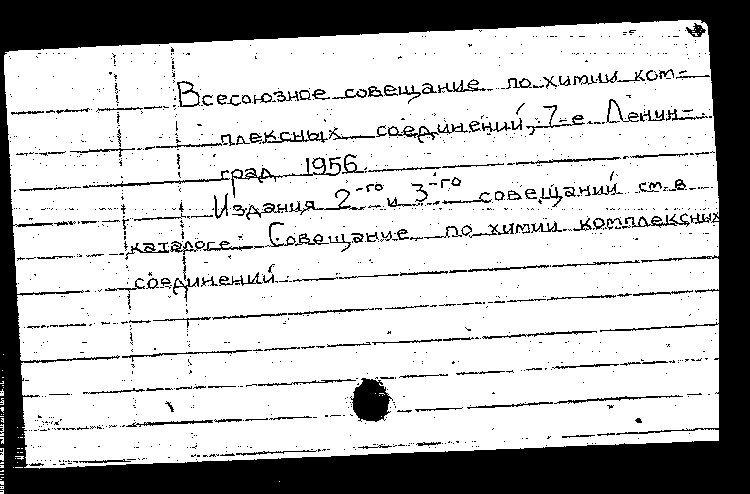 Всесоюзное совещание по химии ком-
плексных соединений, 7-е. Ленин-
град 1956.
Издания 2-го и 3-го совещаний см. в
каталоге: Совещание по химии комплексных
соединений.